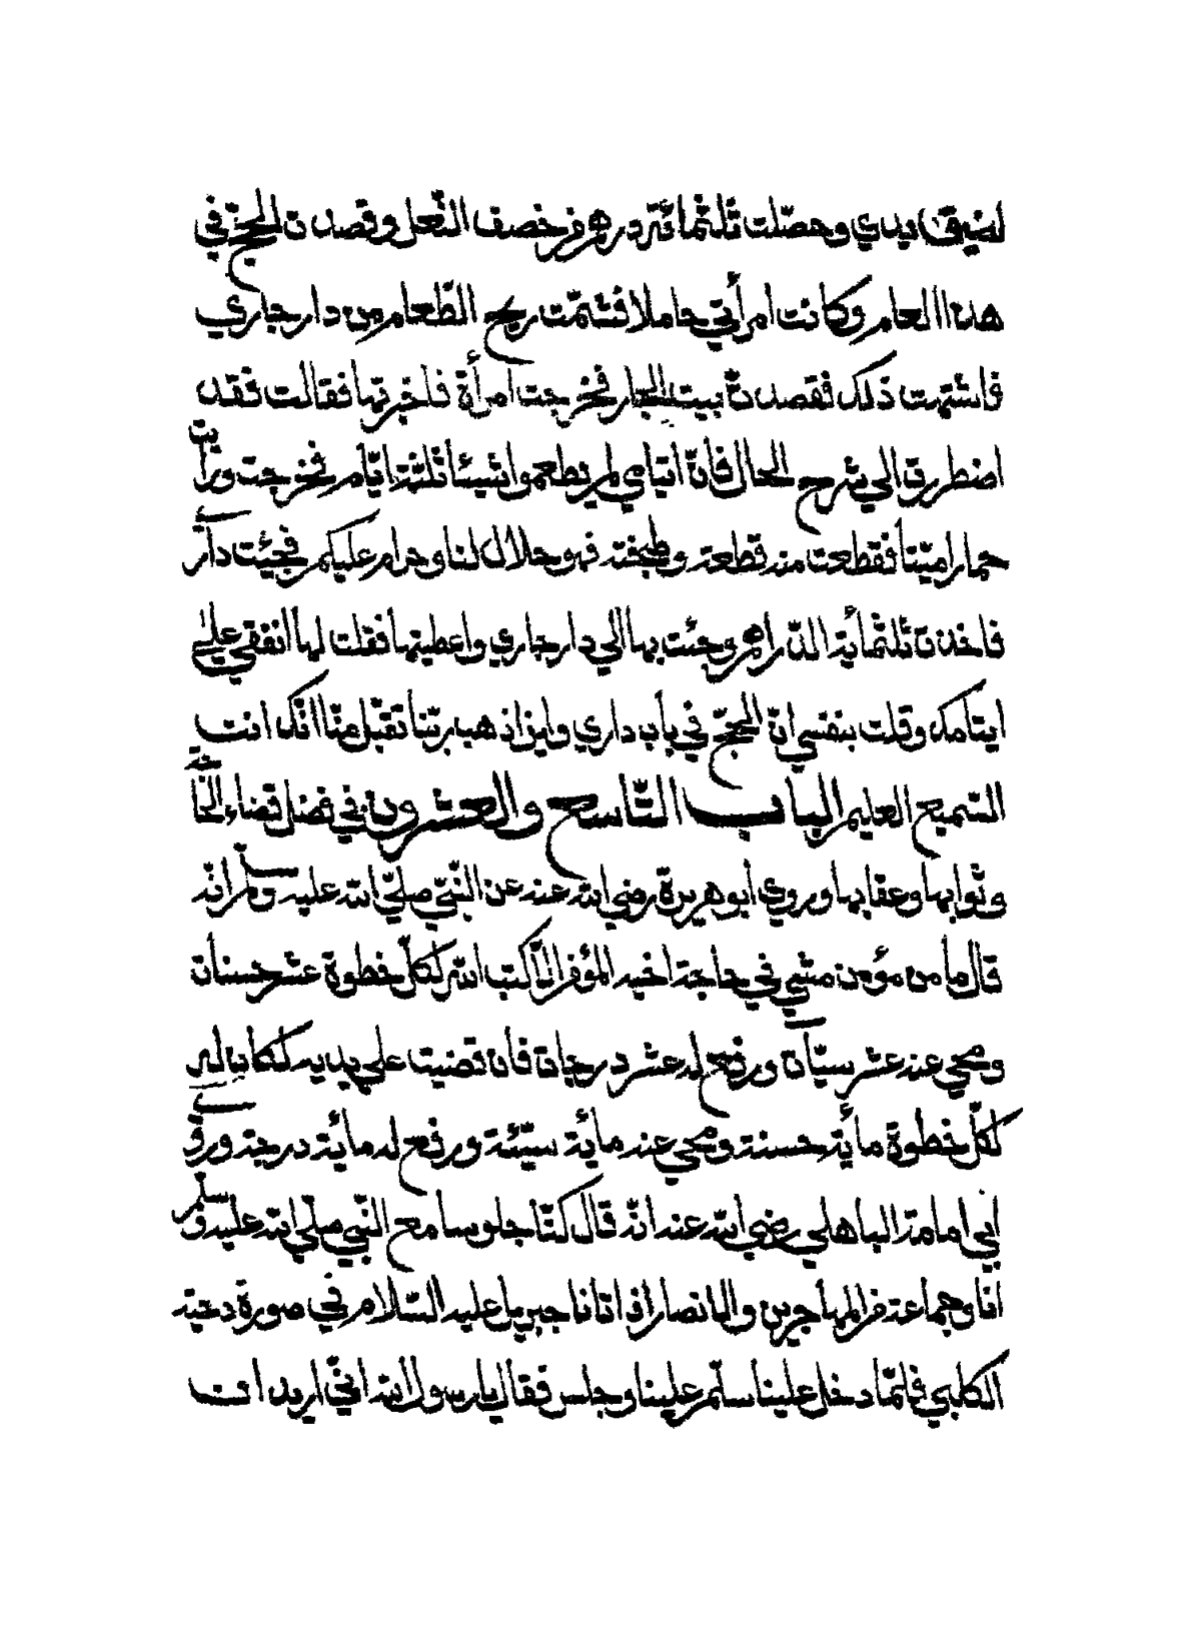 لضيق يدي وحصّلت ثلثمائة درهم من خصف النّعل وقصدت الحجّ في
هذا العام وكانت امرأتي حاملا فشمّت ريح الطّعام من دار جاري
فاشتهت ذلك فقصدت بيت الجار فخرجت امرأة فاخبرتها فقالت فقد
اضطررت الي شرح الحال فانّ ايتامي لم يطعموا شيئا ثلثة ايّام فخرجت ورأيت
حمارا ميّتا فقطعت منه قطعة وطبخته فهو حلال لنا وحرام عليكم فجئت داري
فاخذت ثلثمائة الدّراهم وجئت بها الي دار جاري واعطيتها فقلت لها انفقي علي
ايتامك وقلت بنفسي انّ الحجّ في باب داري واين اذهب ربّنا تقبّل منّا انّك انت
السّميع العليم الباب التّاسع والعشرون في فضل قضاء الحاجة
وثوابها وعقابها وروي أبو هريرة رضي الله عنه عن النّبيّ صلّي الله عليه وسلّم انّه
قال ما من مؤمن مشي في حاجة اخيه المؤمن الّا كتب الله لكلّ خطوة عشر حسنات
ومحي عنه عشر سيّآت ورفع له عشر درجات فان قضيت علي يديه لكان له
لكلّ خطوة مأية حسنة ومحي عنه مأية سيّئة ورفع له مأية درجة وروي
أبي امامة الباهلي رضي الله عنه انّه قال كنّا جلوسا مع النّبيّ صلّي الله عليه وسلّم
انا وجماعة من المهاجرين والانصار اذ اتانا جبريل عليه السّلام في صورة دحية
الكلبي فلمّا دخل علينا سلّم علينا وجلس فقال يا رسول الله انّي اريد انت